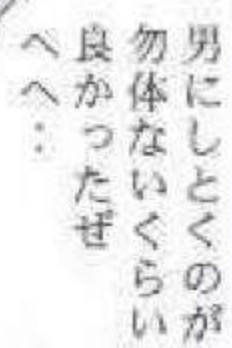 男にしとくのが
勿体ないくらい
良かったぜ
へへ…